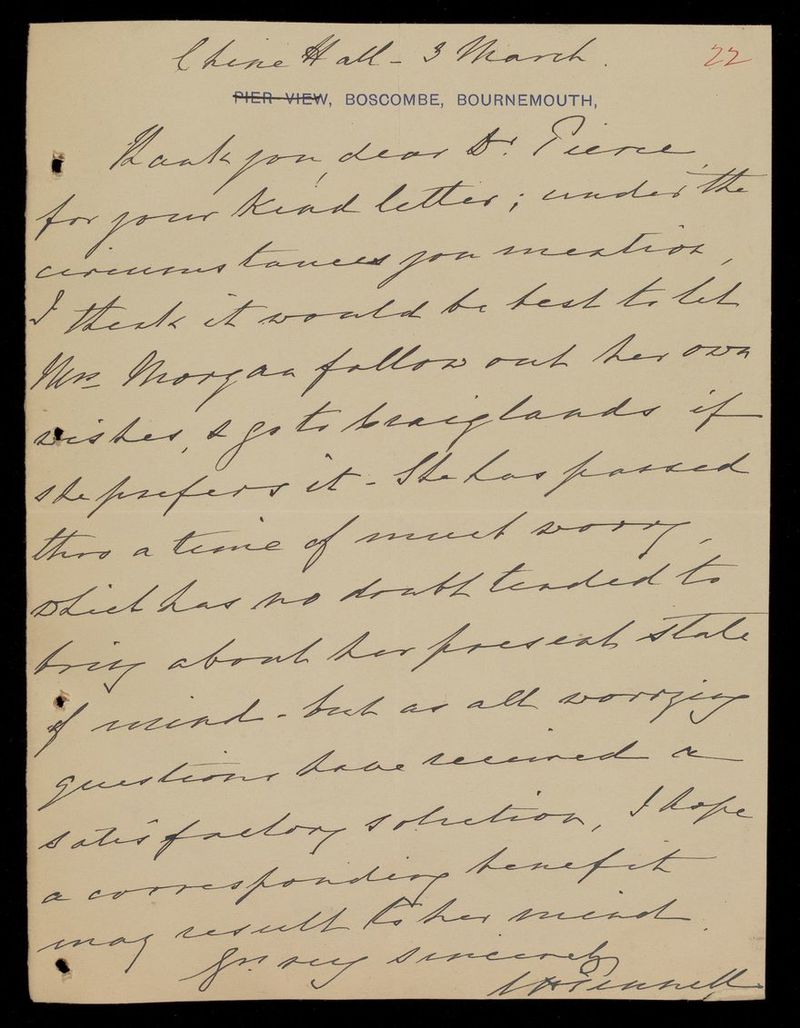 Chine Hall - 3 March. 22
PIER VIEW, BOSCOMBE, BOURNEMOUTH,
Thank you, dear Dr. Pierce,
for your kind letter; under the
circumstances you mention,
I think it would be best to let
Mrs Morgan follow out her own
wishes, & go to Craiglands if
she prefers it - She has passed
thro a time of much worry,
which has no doubt tended to
bring about her present state
of mind - but as all worrying
questions have received a
satisfactory solution, I hope
a corresponding benefit
may result to her mind.
Yrs. very sincerely